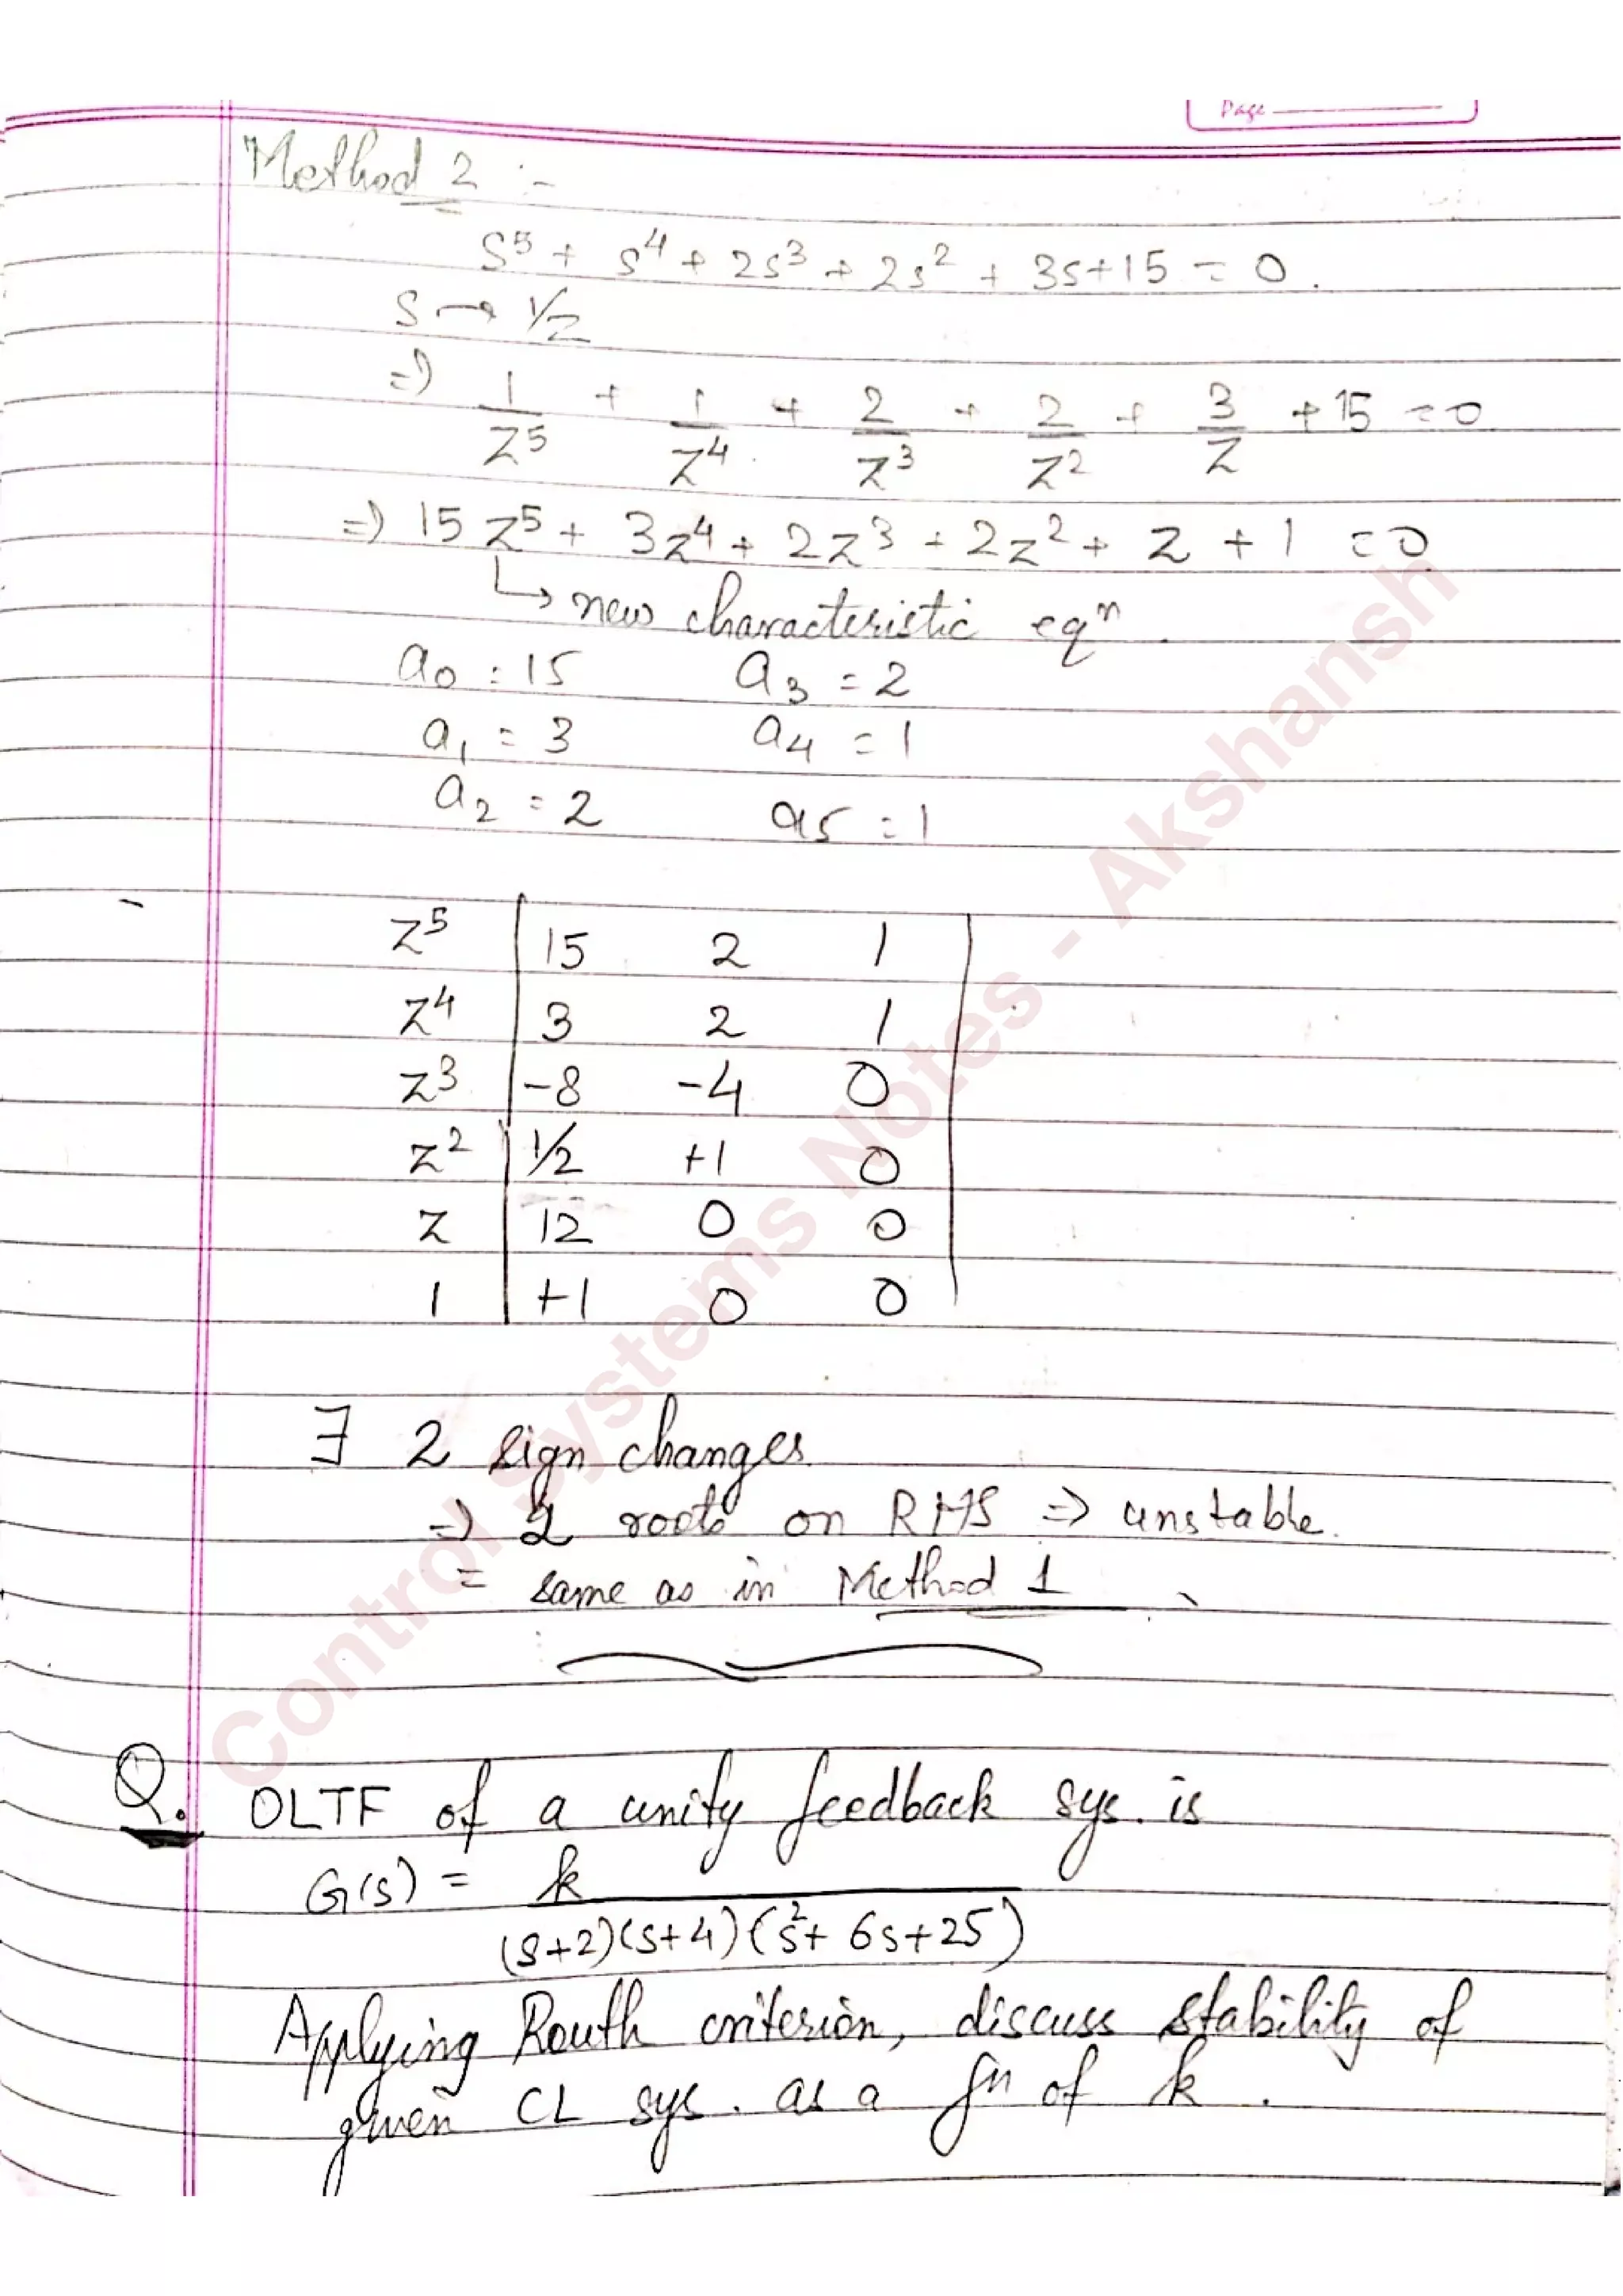 Page
Method 2 :-
s⁵ + s⁴ + 2s³ + 2s² + 3s+15 = 0.
s → 1/z
⇒ 1/z⁵ + 1/z⁴ + 2/z³ + 2/z² + 3/z + 15 = 0
⇒ 15z⁵ + 3z⁴ + 2z³ + 2z² + z + 1 = 0
↳ new characteristic eqⁿ.
a₀ = 15 a₃ = 2
a₁ = 3 a₄ = 1
a₂ = 2 a₅ = 1
z⁵ | 15 2 1
z⁴ | 3 2 1
z³ | -8 -4 0
z² | 1/2 +1 0
z | 12 0 0
1 | +1 0 0
∃ 2 sign changes
⇒ 2 roots on RHS ⇒ unstable.
= same as in Method 1
Q. OLTF of a unity feedback sys. is
G(s) = k / (s+2)(s+4)(s²+ 6s+25)
Applying Routh criterion, discuss stability of
given CL sys. as a fⁿ of k.
Control Systems Notes - Akshansh